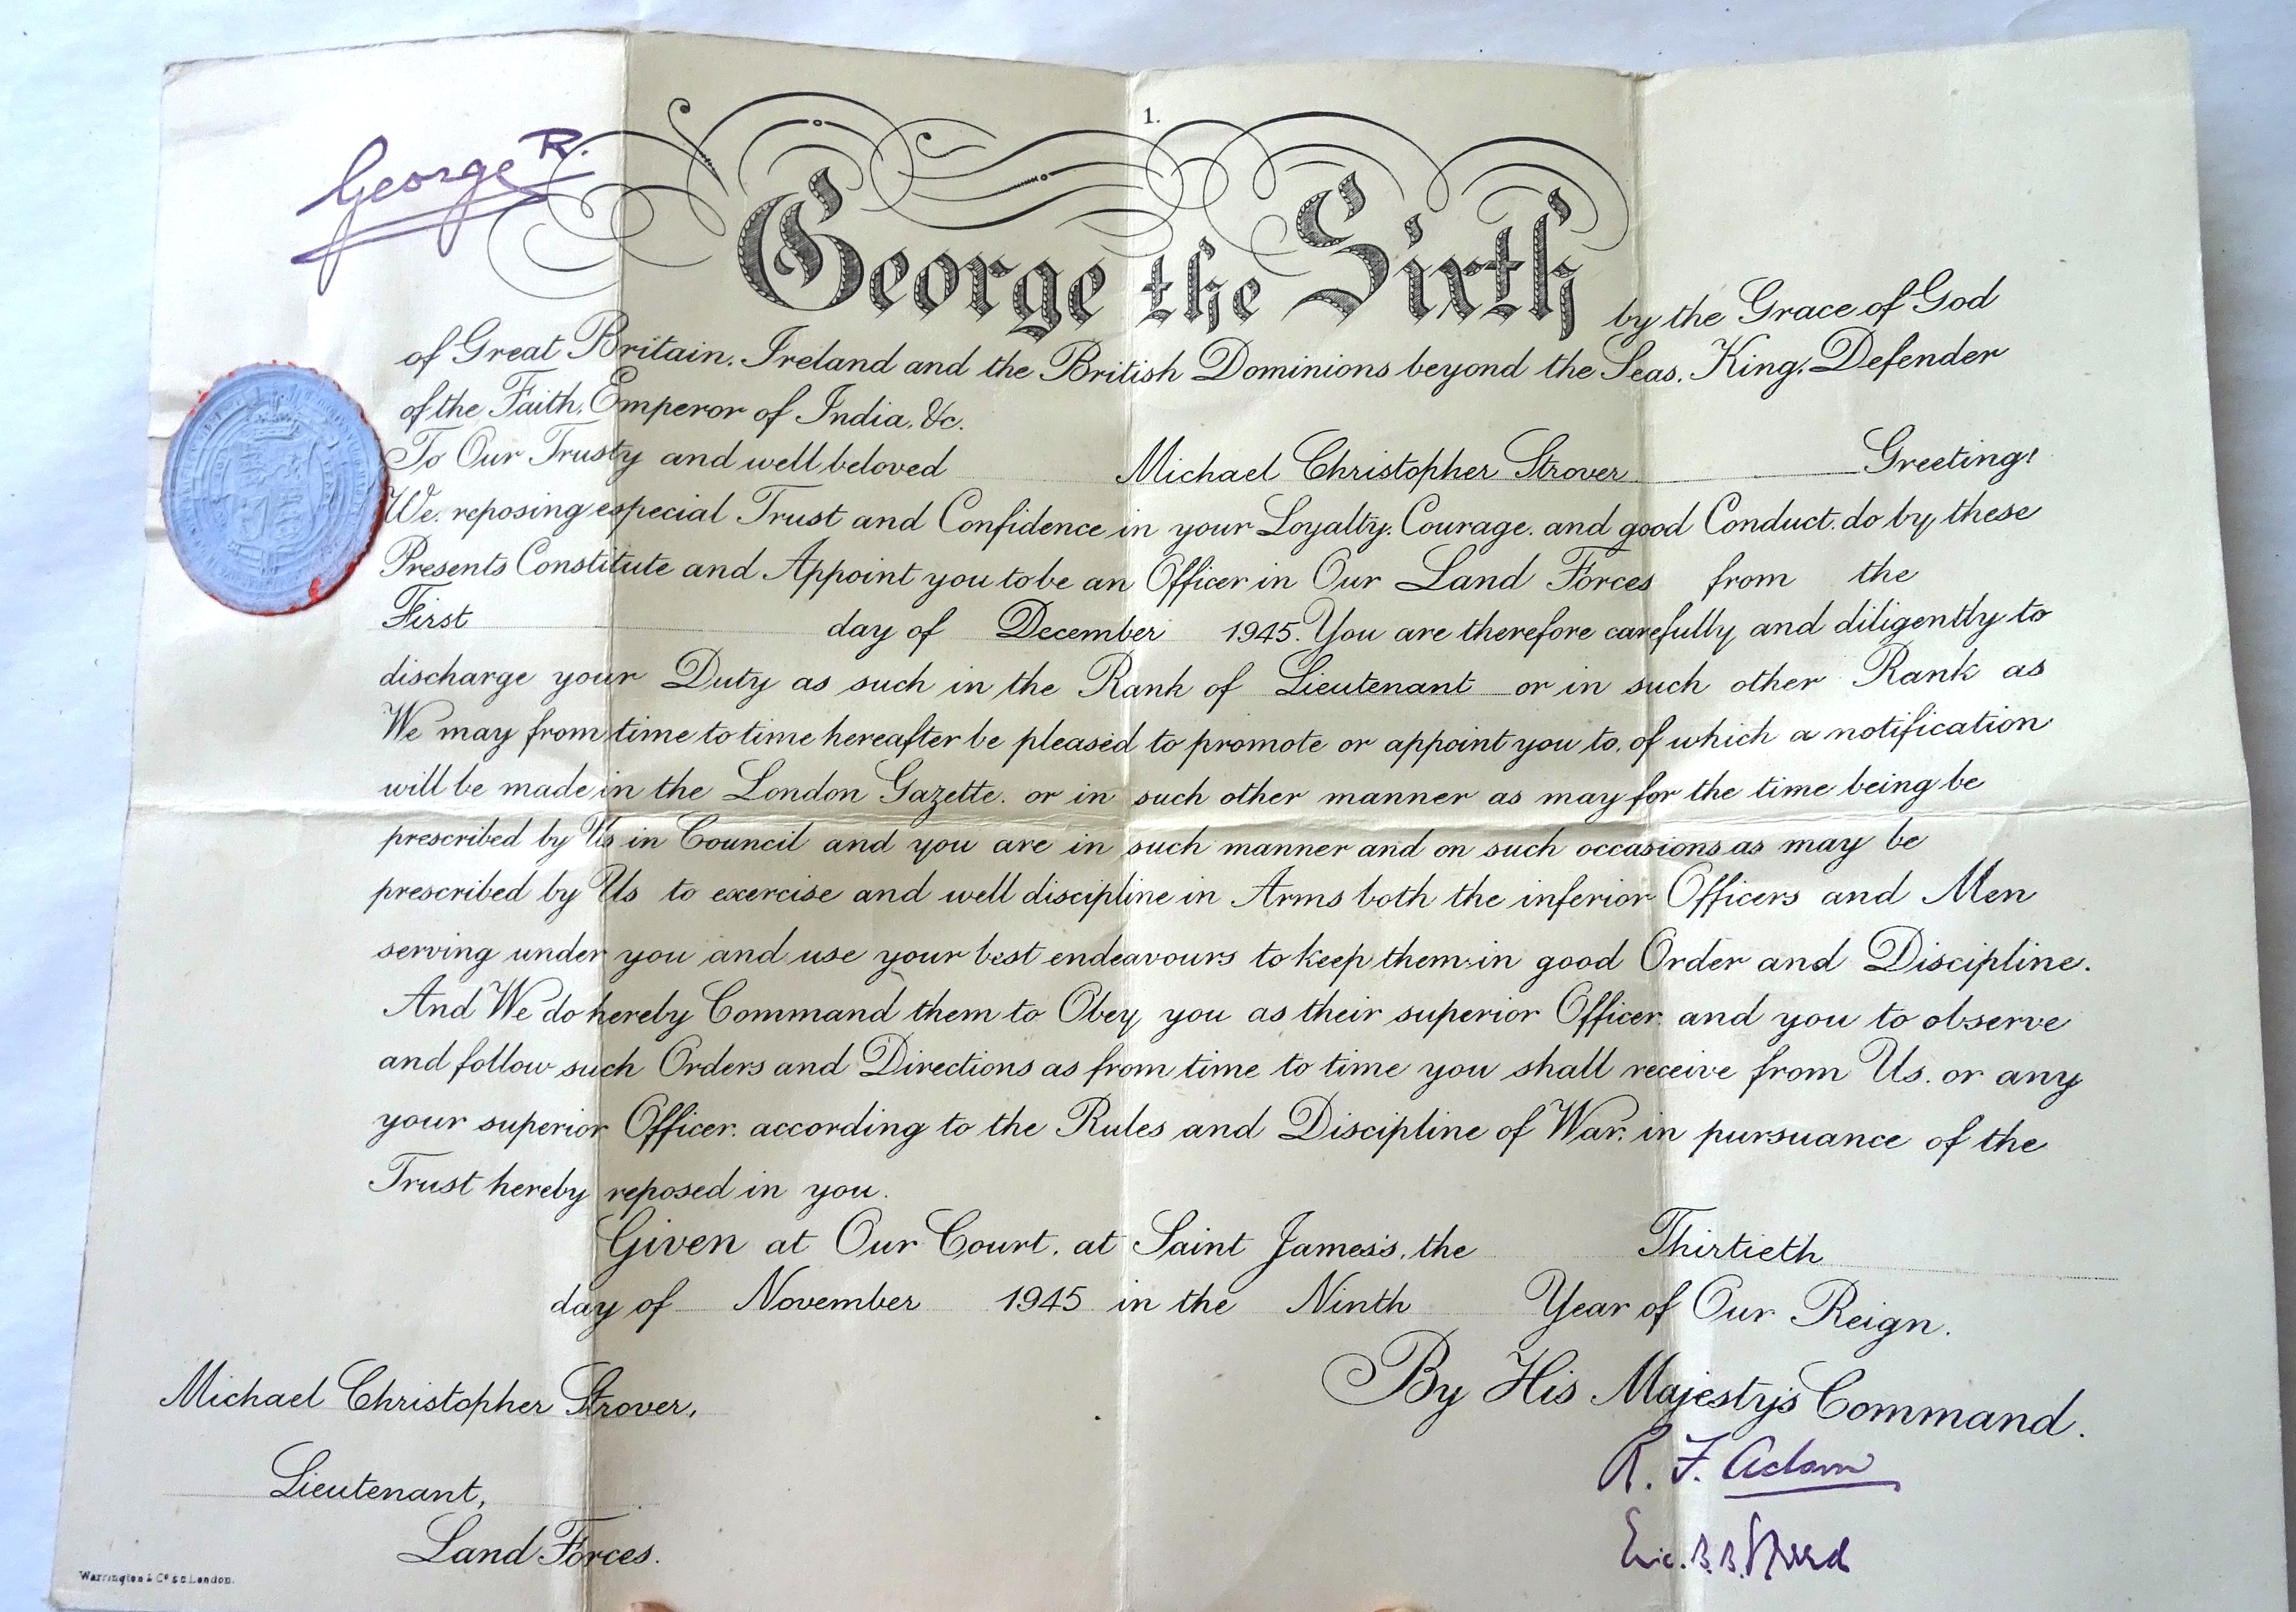 1.
George R.
George the Sixth by the Grace of God
of Great Britain, Ireland and the British Dominions beyond the Seas, King, Defender
of the Faith, Emperor of India, &c.
To Our Trusty and well beloved Michael Christopher Strover Greeting!
We, reposing especial Trust and Confidence in your Loyalty, Courage, and good Conduct, do by these
Presents Constitute and Appoint you to be an Officer in Our Land Forces from the
First day of December 1945. You are therefore carefully and diligently to
discharge your Duty as such in the Rank of Lieutenant or in such other Rank as
We may from time to time hereafter be pleased to promote or appoint you to, of which a notification
will be made in the London Gazette, or in such other manner as may for the time being be
prescribed by Us in Council and you are in such manner and on such occasions as may be
prescribed by Us to exercise and well discipline in Arms both the inferior Officers and Men
serving under you and use your best endeavours to keep them in good Order and Discipline.
And We do hereby Command them to Obey you as their superior Officer, and you to observe
and follow such Orders and Directions as from time to time you shall receive from Us, or any
your superior Officer, according to the Rules and Discipline of War, in pursuance of the
Trust hereby reposed in you.
Given at Our Court, at Saint James's, the Thirtieth
day of November 1945 in the Ninth Year of Our Reign.
By His Majesty's Command.
R. F. Adam
Eric. B. B.
Michael Christopher Strover,
Lieutenant,
Land Forces.
Warrington & Co. S.C. London.